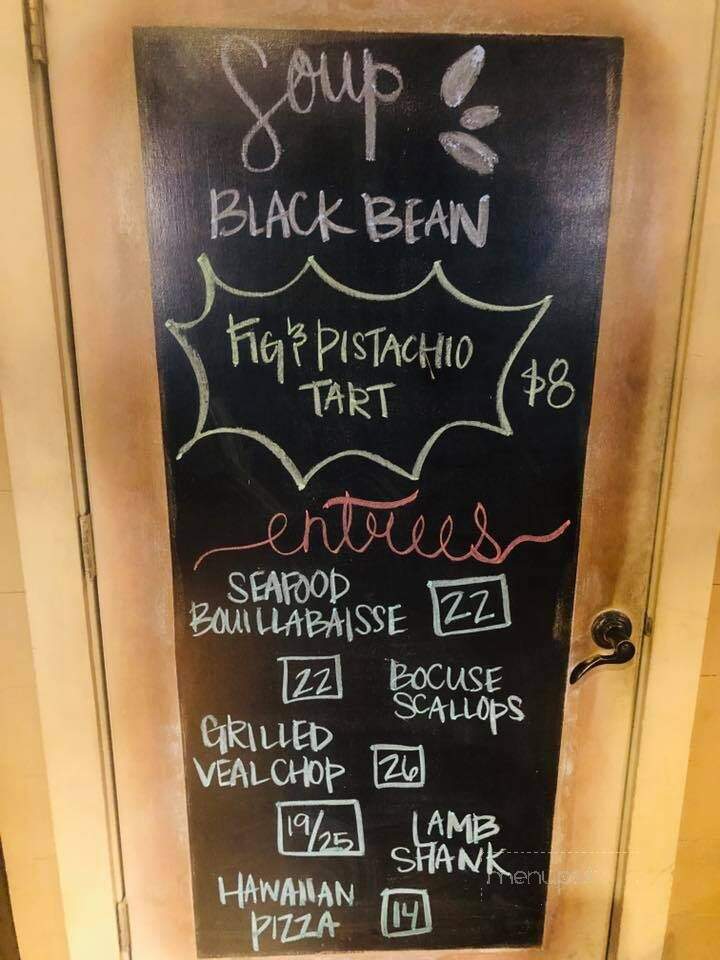 Soup
BLACK BEAN
FIG & PISTACHIO
TART
$8
entrees
SEAFOOD
BOUILLABAISSE 22
22 BOCUSE
SCALLOPS
GRILLED
VEAL CHOP 26
19/25 LAMB
SHANK
HAWAIIAN
PIZZA 14